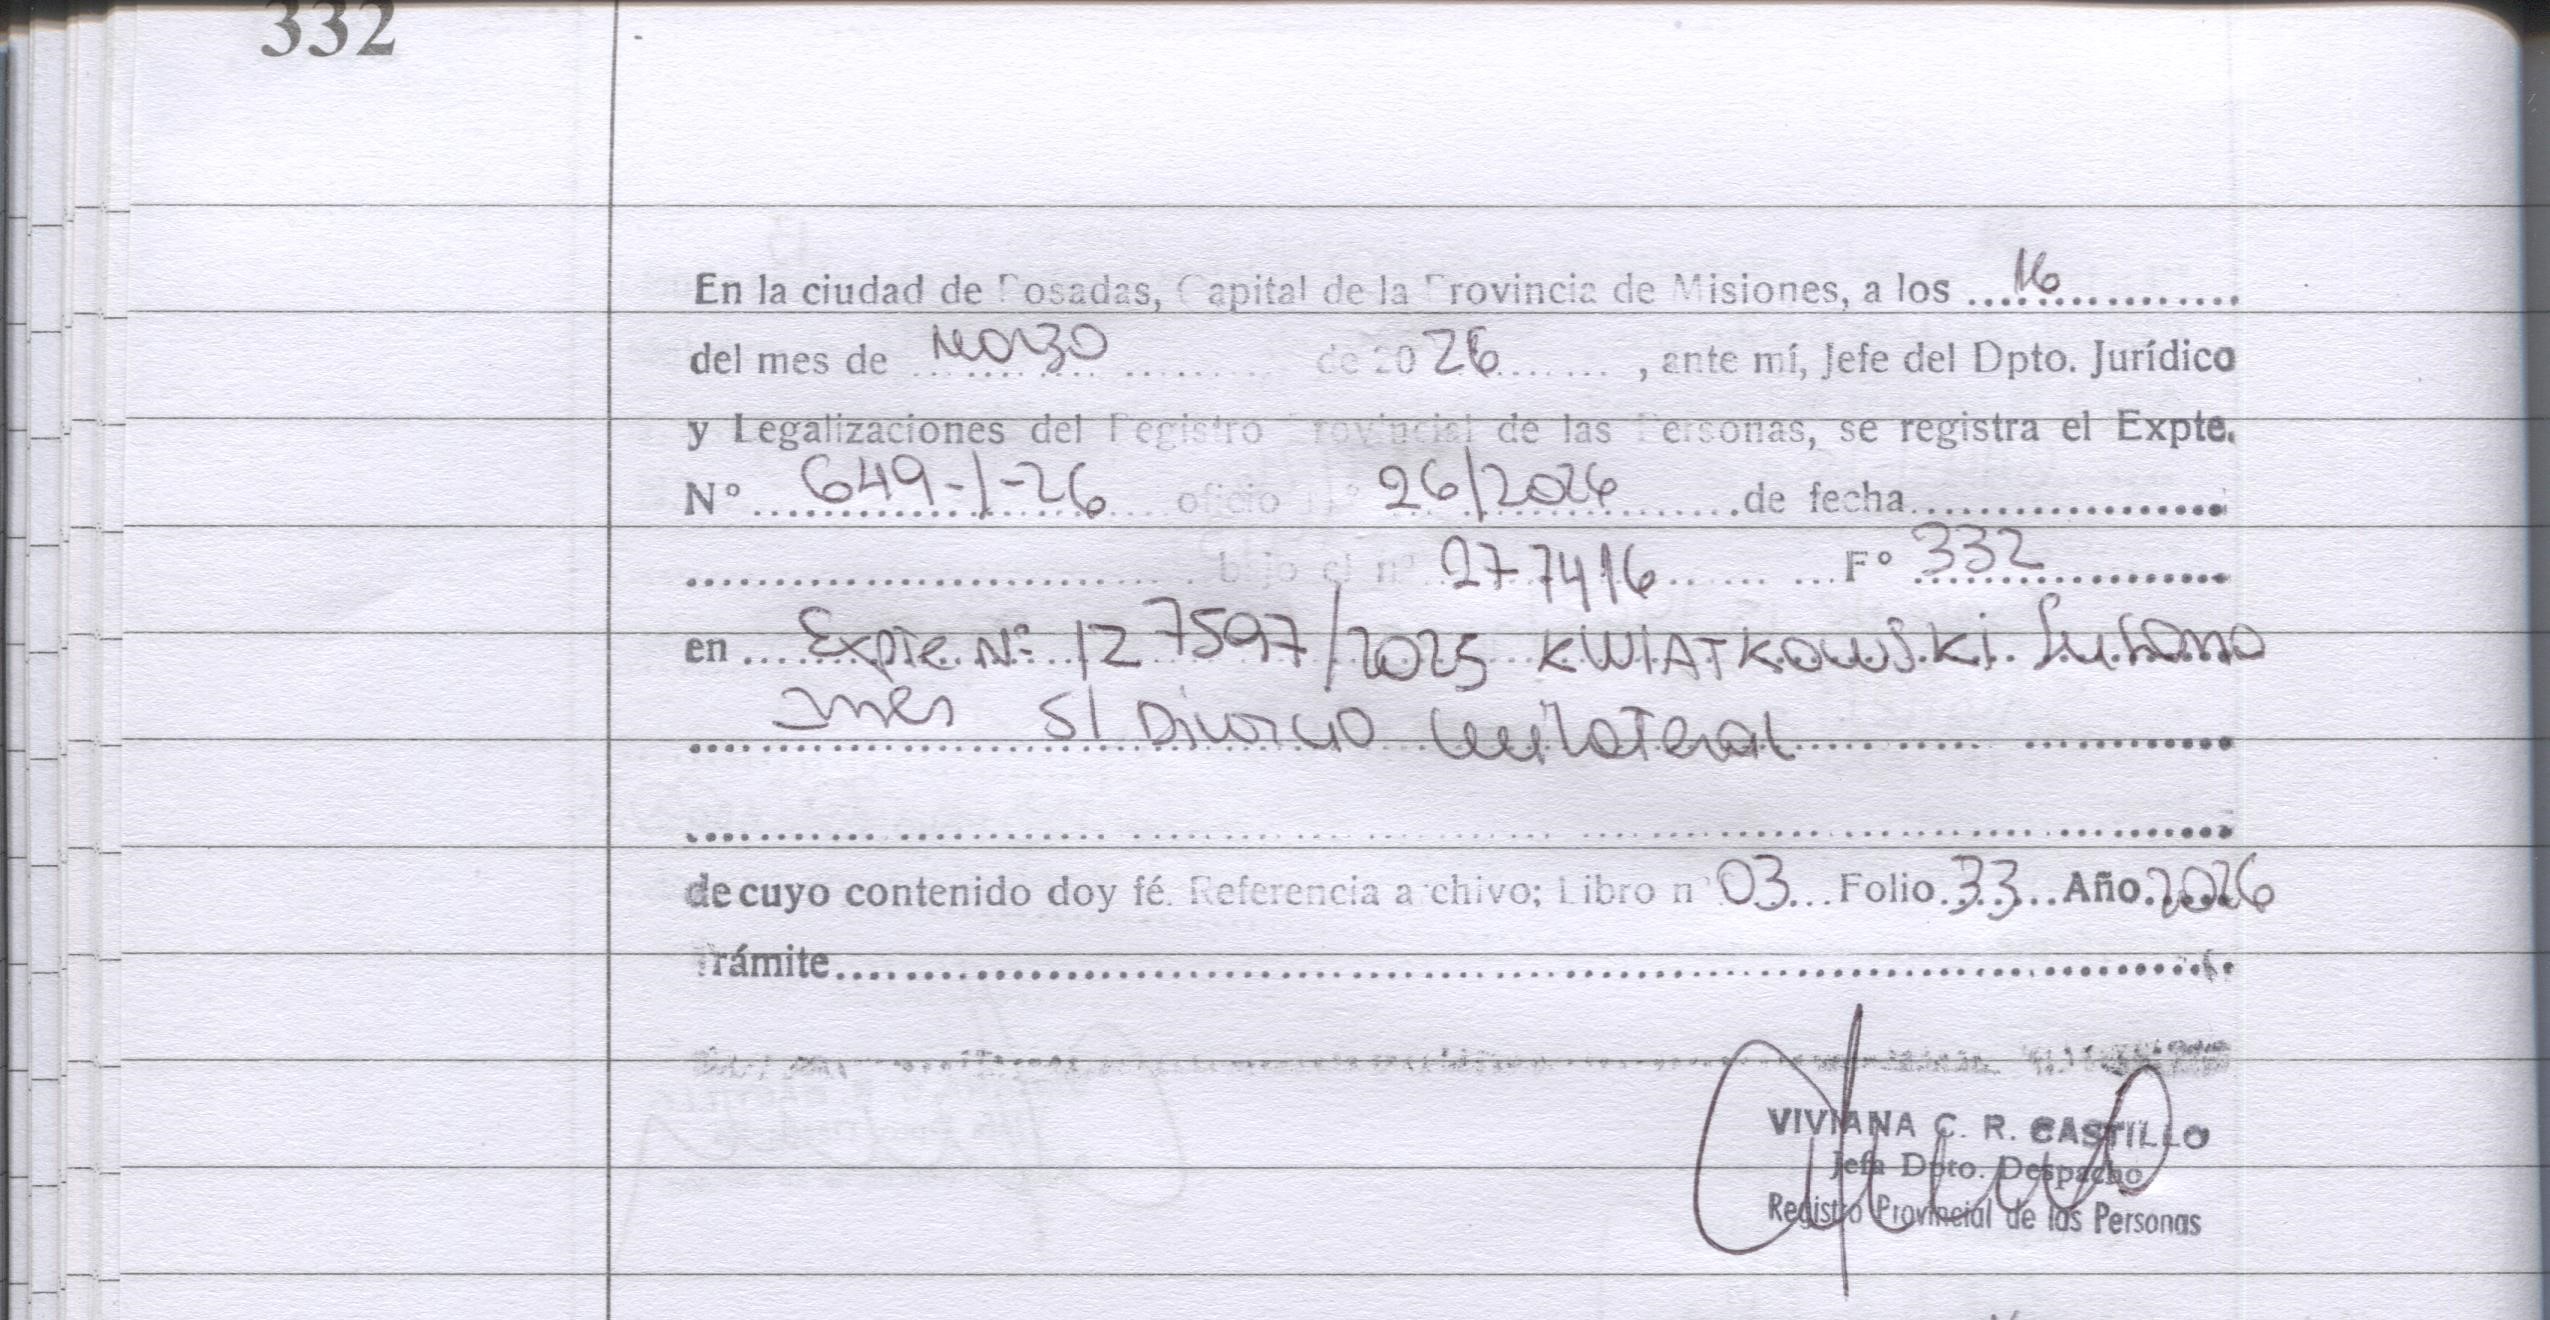 332
En la ciudad de Posadas, Capital de la Provincia de Misiones, a los 16
del mes de Marzo de 2026, ante mí, Jefe del Dpto. Jurídico
y Legalizaciones del Registro Provincial de las Personas, se registra el Expte.
Nº 649-1-26 oficio nº 26/2026 de fecha
bajo el nº 277416 Fº 332
en Expte Nº 127597/2025 KWIATKOWSKI Susana
Ines S/ Divorcio Unilateral
de cuyo contenido doy fé. Referencia archivo; Libro nº 03 Folio 33 Año 2026
Trámite
VIVIANA C. R. CASTILLO
Jefa Dpto. Despacho
Registro Provincial de las Personas